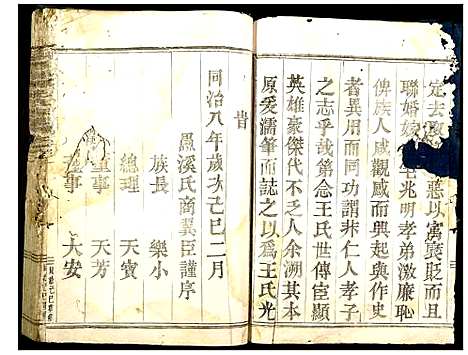 定去 惡以寓褒貶而且
聯婚 兆明孝弟激廉恥
俾族人咸觀感而興起與作史
者異用而同功謂非仁人孝子
之志乎哉第念王氏世傳宦顯
英雄豪傑代不乏人余溯其本
原爰濡筆而誌之以爲王氏光
旹
同治八年歲次己巳二月
愚溪氏商翼臣謹序
族長 樂小
總理 天寶
董事 天芳
董事 大安